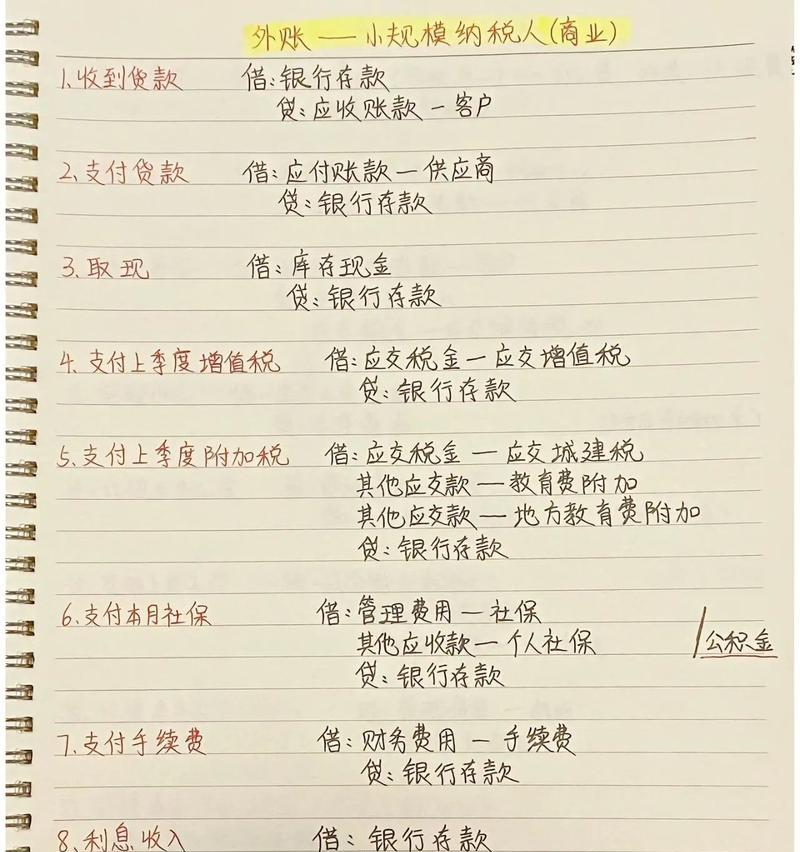 外账——小规模纳税人(商业)
1.收到货款 借:银行存款
贷:应收账款—客户
2.支付货款 借:应付账款—供应商
贷:银行存款
3.取现 借:库存现金
贷:银行存款
4.支付上季度增值税 借:应交税金—应交增值税
贷:银行存款
5.支付上季度附加税 借:应交税金—应交城建税
其他应交款—教育费附加
其他应交款—地方教育费附加
贷:银行存款
6.支付本月社保 借:管理费用—社保
其他应收款—个人社保 /公积金
贷:银行存款
7.支付手续费 借:财务费用—手续费
贷:银行存款
8.利息收入 借:银行存款